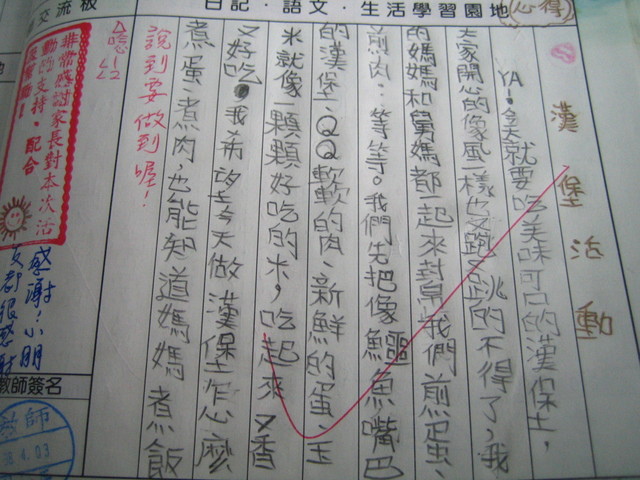 日記·語文·生活學習園地
心得
漢堡活動
YA!今天就要吃美味可口的漢保土,
大家開心的像風一樣也又跑又跳的不得了,我
的媽媽和舅媽都一起來幫我們煎蛋、
煎肉…等等。我們先把像鱷魚嘴巴
的漢堡、QQ軟軟的肉、新鮮的蛋、玉
米就像一顆顆好吃的米,吃起來又香
又好吃。我希望
天做漢堡
麼
煮蛋、煮肉,也能知道媽媽煮飯
說到要做到喔!
交流板
非常感謝家長對本次活
動的支持、配合
感謝!小明
教師簽名
教師
4.03